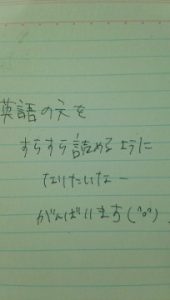 英語の文を
すらすら読めるように
なりたいなー
がんばります(^o^)